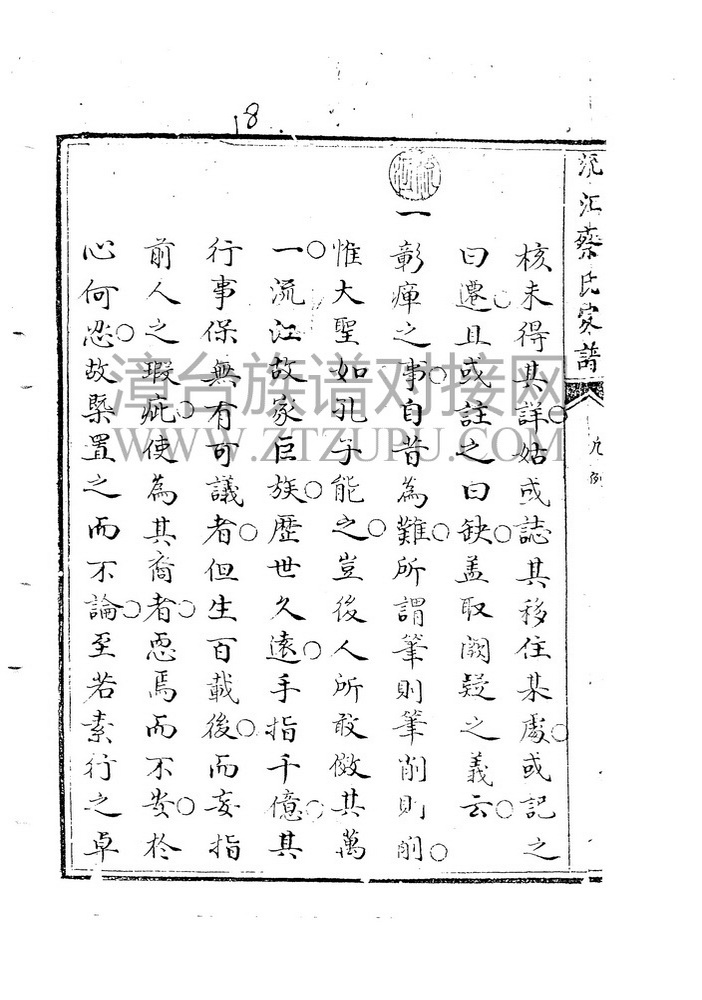 18
流江蔡氏家譜
凡例
核未得其詳姑或誌其移住某處或記之
曰遷且或註之曰缺盖取闕疑之義云
一彰癉之事自昔為難所謂筆則筆削則削
惟大聖如孔子能之豈後人所敢倣其萬
一流江故家巨族歷世久遠手指千億其
行事保無有可議者但生百載後而妄指
前人之瑕疵使為其裔者恧焉而不安於
心何忍故槩置之而不論至若素行之卓
漳台族谱对接网
WWW.ZTZUPU.COM